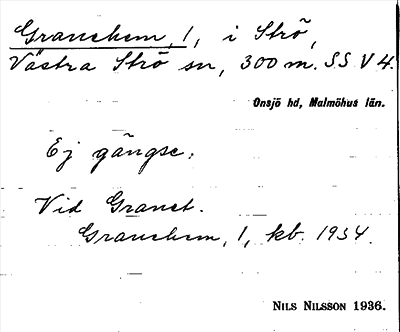 Granehem, 1, i Strö,
Västra Strö sn, 300 m. S.S.V 4.
Onsjö hd, Malmöhus län.
Ej gängse.
Vid Granet.
Granehem, 1, kb. 1934.
NILS NILSSON 1936.